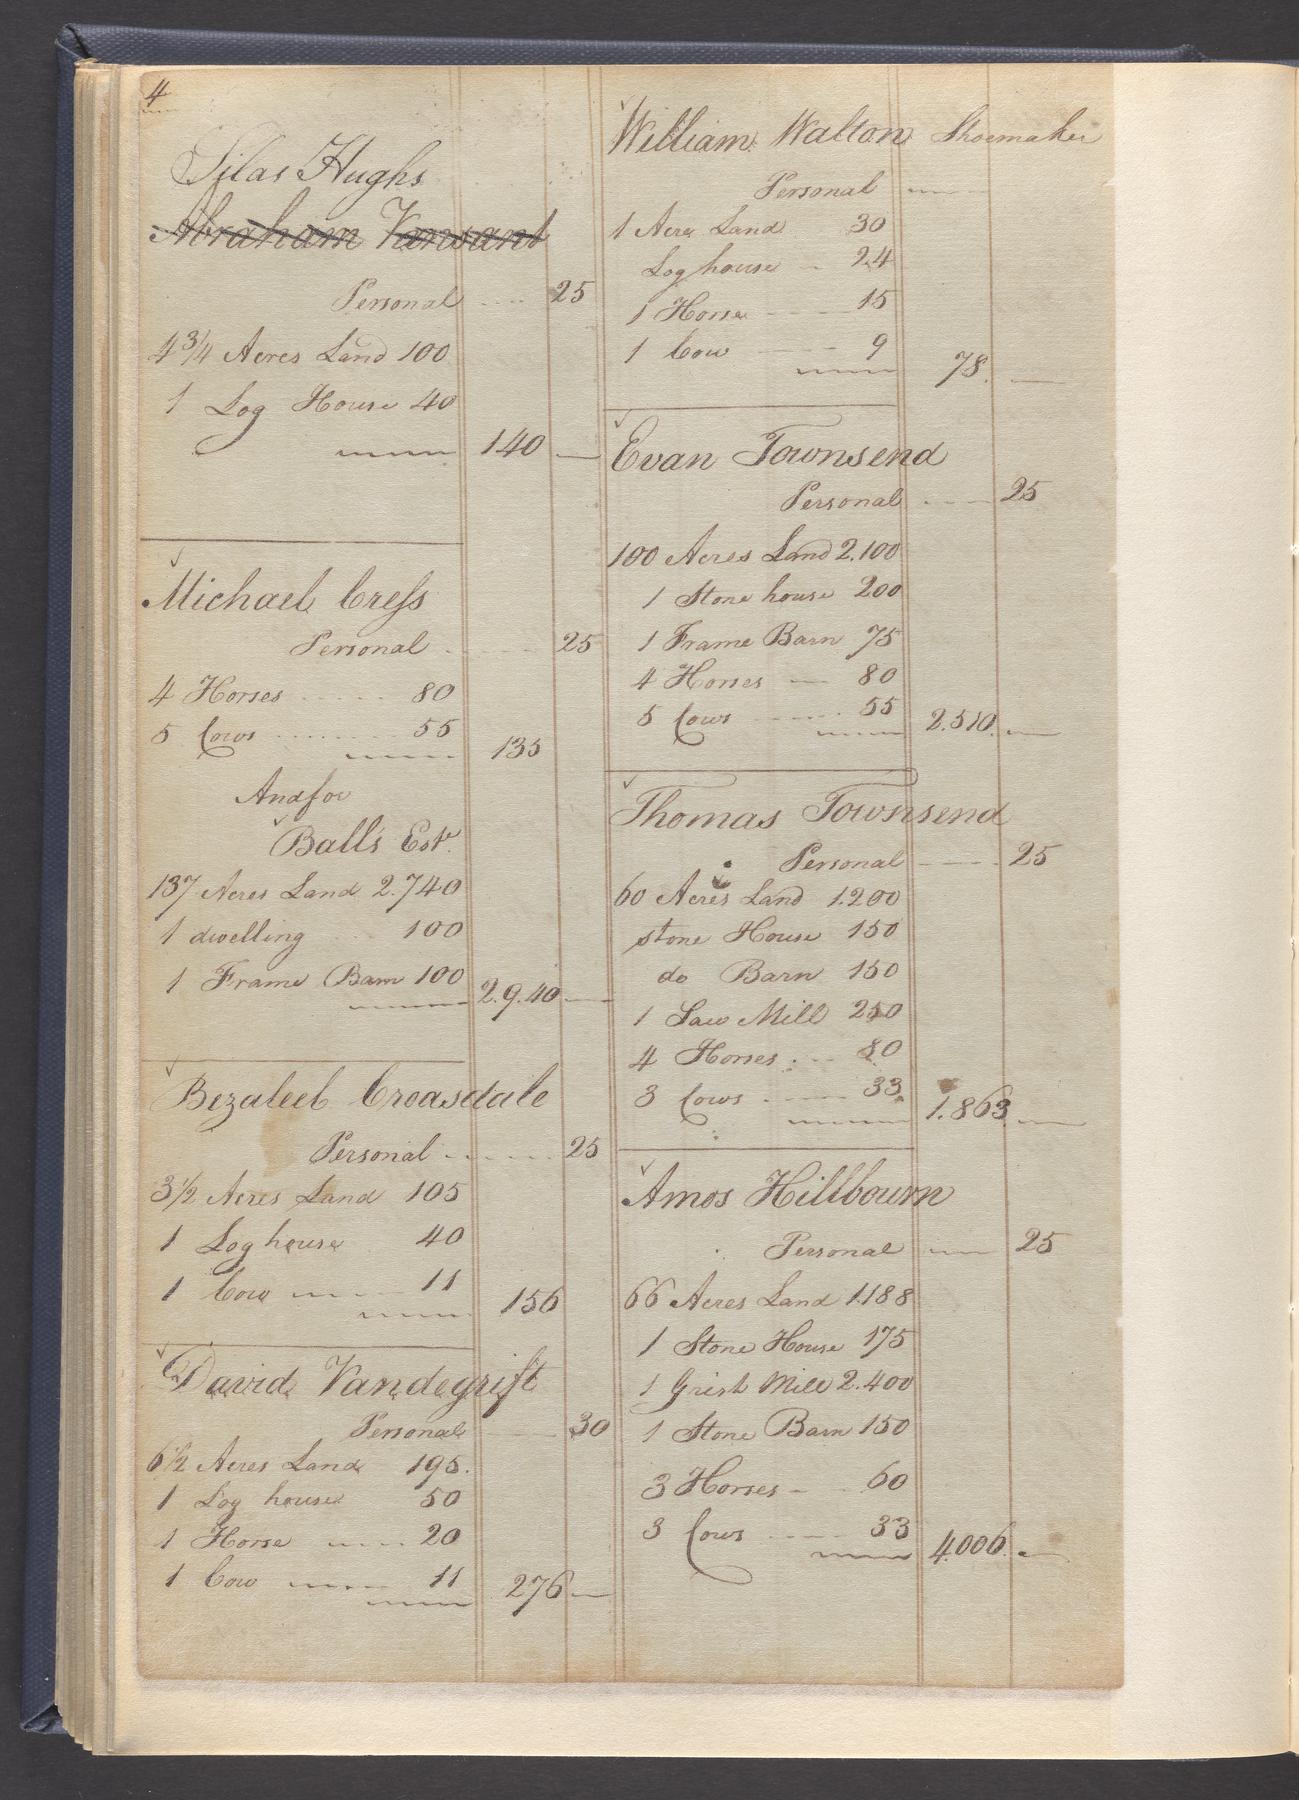 4
Silas Hughs
Abraham Vansant
Personal .... 25
4 3/4 Acres Land 100
1 Log House 40
140 —
Michael Cress
Personal ..... 25
4 Horses ..... 80
5 Cows ........ 55
135
And for
Ball's Est.
137 Acres Land 2.740
1 dwelling 100
1 Frame Barn 100
2.9.40 —
Bezaleel Croasdale
Personal ..... 25
3 1/2 Acres Land 105
1 Log house 40
1 Cow ..... 11
156
David Vandegrift
Personal 30
6 1/2 Acres Land 195.
1 Log house 50
1 Horse ..... 20
1 Cow ..... 11
276 —
William Walton Shoemaker
Personal
1 Acre Land 30
Log house - 24
1 Horse ----- 15
1 Cow ---- 9
78. —
Evan Townsend
Personal .... 25
100 Acres Land 2.100
1 Stone house 200
1 Frame Barn 75
4 Horses --- 80
5 Cows ..... 55
2.510. —
Thomas Townsend
Personal ---- 25
60 Acres Land 1.200
stone House 150
do Barn 150
1 Saw Mill 250
4 Horses ... 80
3 Cows ..... 33
1.863. —
Amos Hillbourn
Personal --- 25
66 Acres Land 1.188
1 Stone House 175
1 Grist Mill 2.400
1 Stone Barn 150
3 Horses - 60
3 Cows .... 33
4.006. —